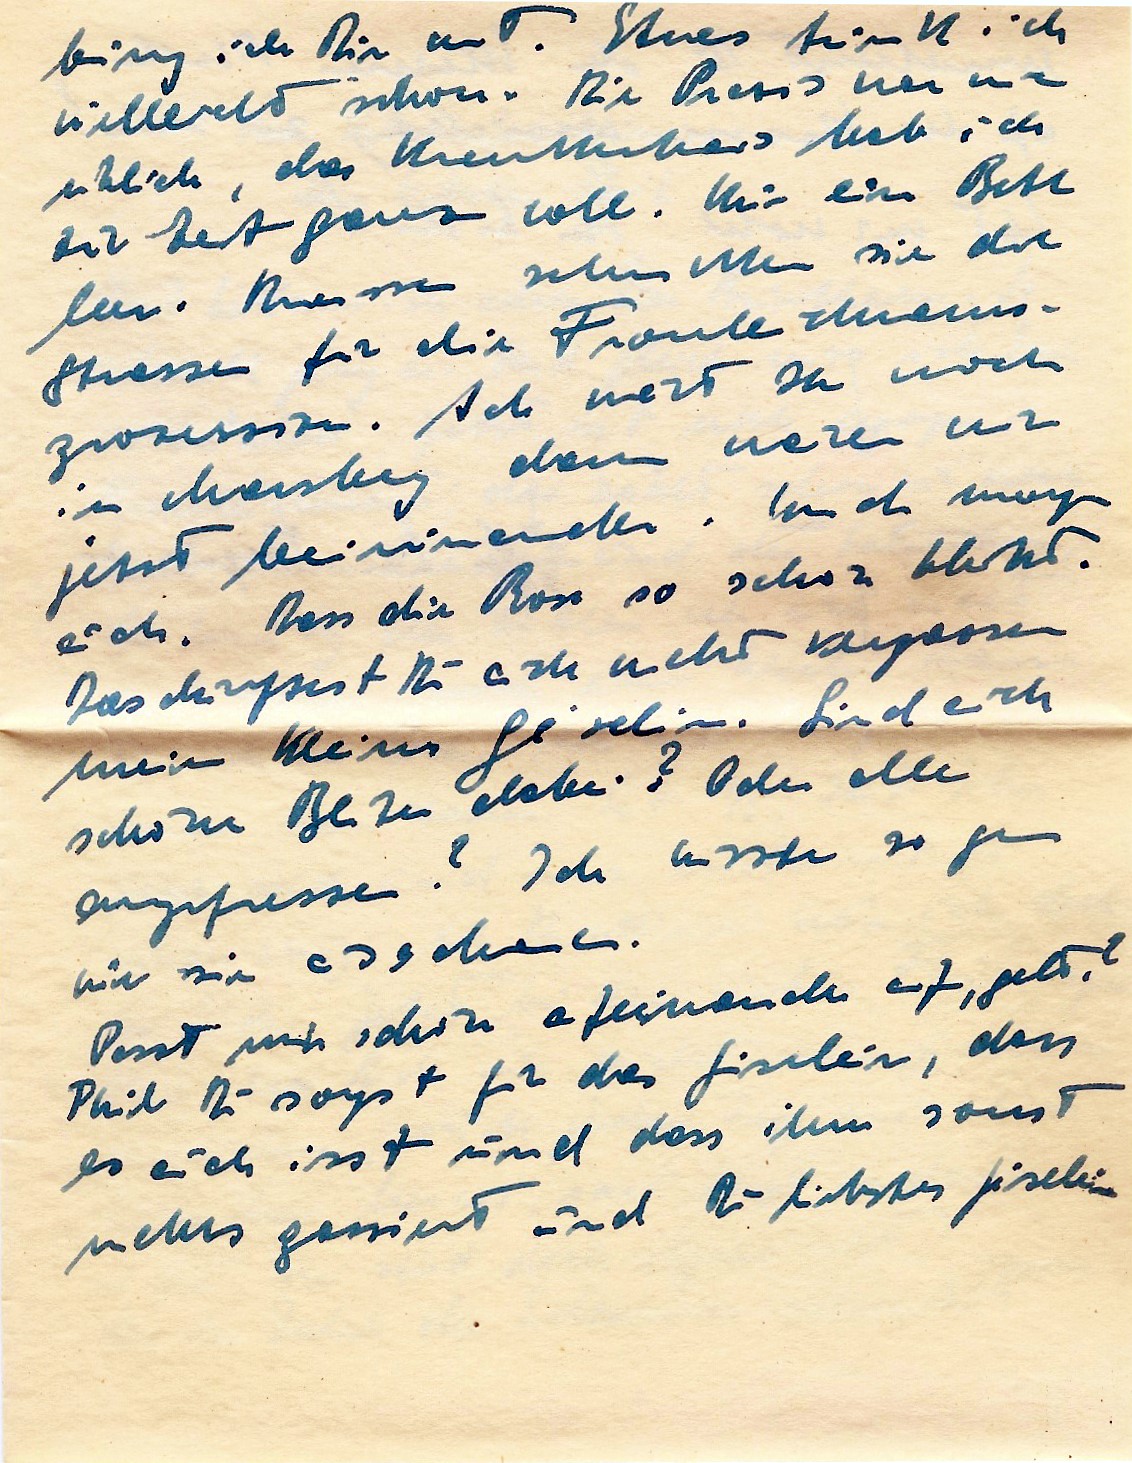 bring ich Dir mit. Etwas trink ich
vielleicht schon. Die Praxis war
, das Krankenhaus hab ich
zur Zeit ganz voll. Nur ein Bett
leer. Draussen schmücken sie die
Strassen für die Fronleichnams-
prozession. Ach wärst Du noch
in dann wären wir
jetzt beieinander. Und morgen
auch. Dass die Rose so schön blüht.
Das dürftest Du auch nicht vergessen
mein kleines Giselein. Sind auch
schöne Blüten dabei? Oder alle
angefressen? Ich wüsste so gern
wie sie ausschauen.
Passt mir schön aufeinander auf, gelt?
Phil Du sorgst für das Giselein, dass
es auch isst und dass ihm sonst
nichts passiert und Du liebstes Giselein